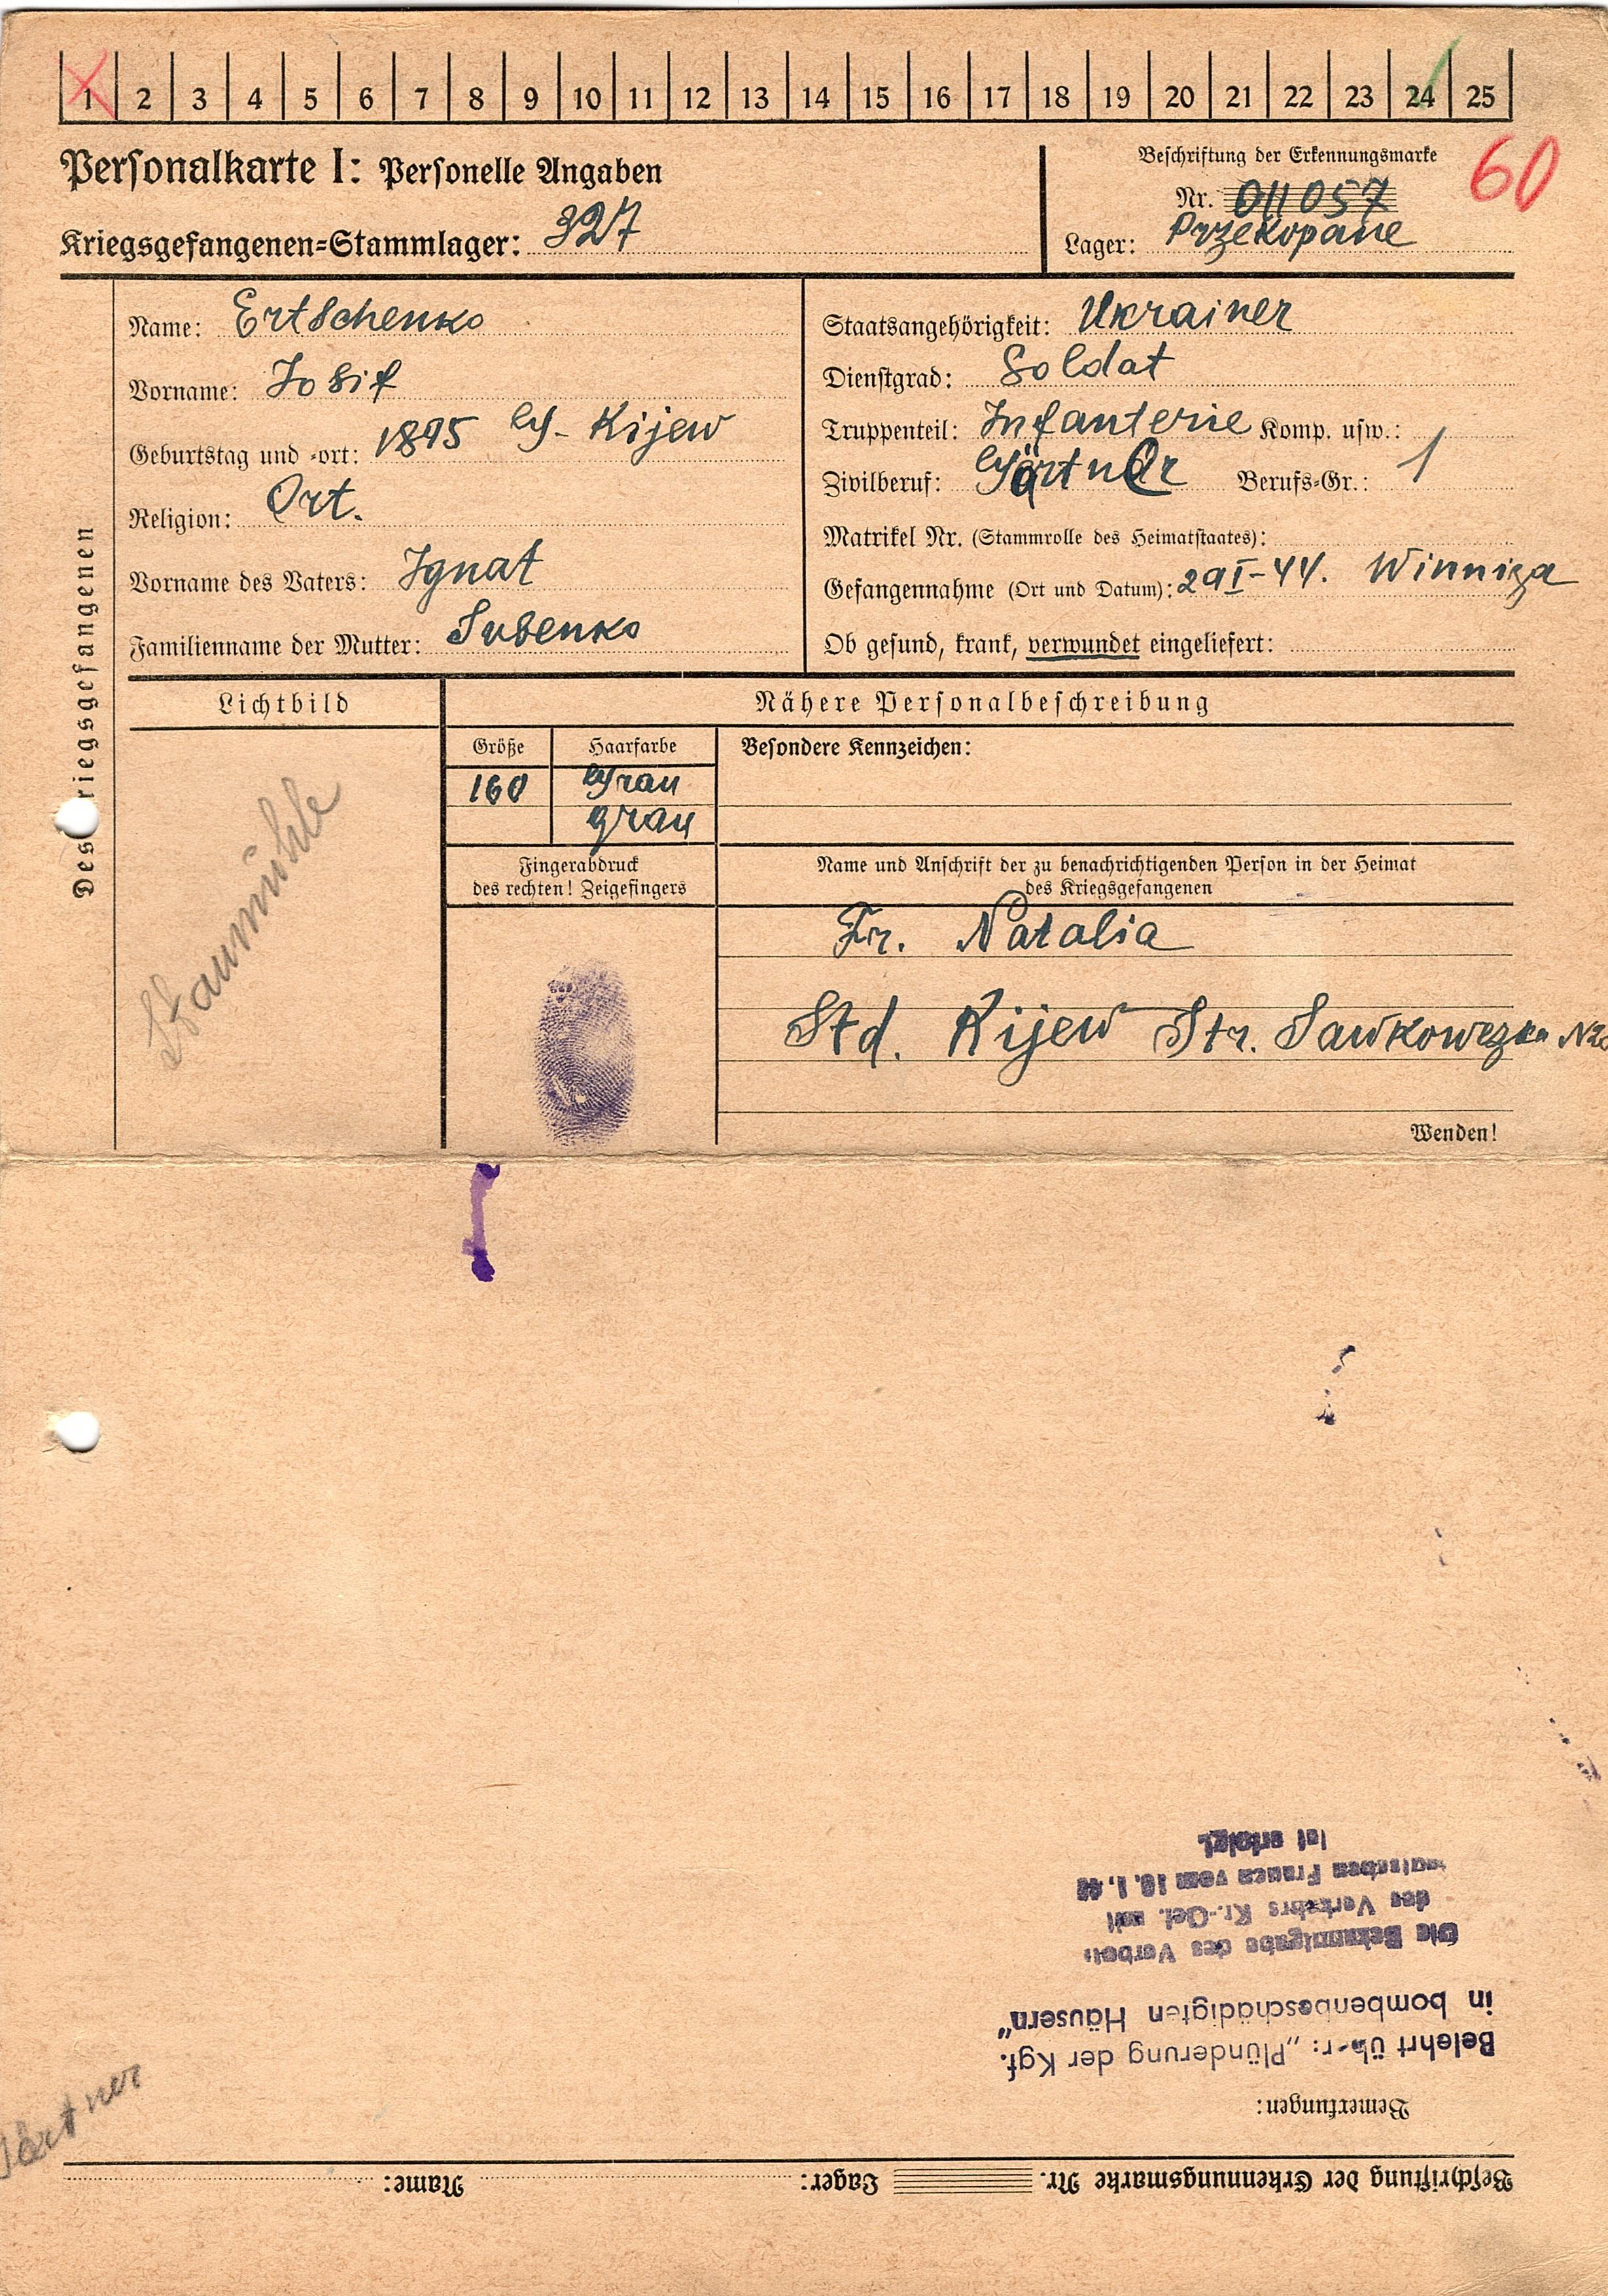 1 2 3 4 5 6 7 8 9 10 11 12 13 14 15 16 17 18 19 20 21 22 23 24 25
Personalkarte I: Personelle Angaben
Kriegsgefangenen=Stammlager: 327
Beschriftung der Erkennungsmarke
60
Nr. 011057
Lager: Przekopane
Des Kriegsgefangenen
Name: Ertschenko
Vorname: Josif
Geburtstag und =ort: 1895 G- Kijew
Religion: Ort.
Vorname des Vaters: Ignat
Familienname der Mutter:
Staatsangehörigkeit: Ukrainer
Dienstgrad: Soldat
Truppenteil: Infanterie Komp. usw.:
Zivilberuf: Gärtner Berufs=Gr.: 1
Matrikel Nr. (Stammrolle des Heimatstaates):
Gefangennahme (Ort und Datum): 29 I-44. Winniza
Ob gesund, krank, verwundet eingeliefert:
Lichtbild
Staumühle
Nähere Personalbeschreibung
Größe Haarfarbe
160 Grau
grau
Besondere Kennzeichen:
Fingerabdruck
des rechten! Zeigefingers
Name und Anschrift der zu benachrichtigenden Person in der Heimat
des Kriegsgefangenen
Fr. Natalia
Std. Kijew Str.
Wenden!
Beschriftung der Erkennungsmarke Nr. Lager: Name:
Bemerkungen:
Belehrt über: „Plünderung der Kgf.
in bombenbeschädigten Häusern"
Die Bekanntgabe des Verbot
des Verkehrs Kr.-Gef. mit
Frauen vom
ist erfolgt.